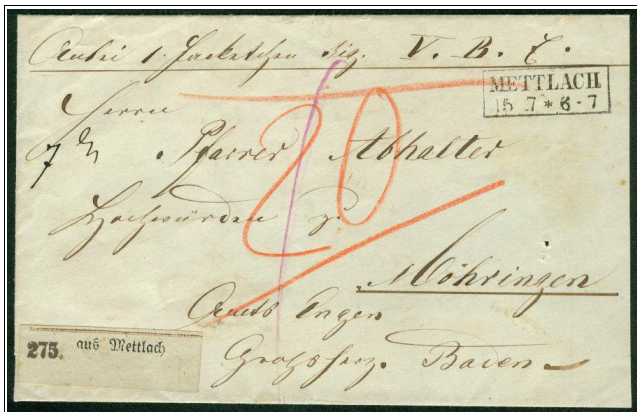 Anbei 1. Packetchen Sig. V. B. C.
METTLACH
15 7 * 6-7
Herrn
Pfarrer Abhalter
20
Hochwürden
Möhringen
Amts Engen
Großherz. Baden
275. aus Mettlach